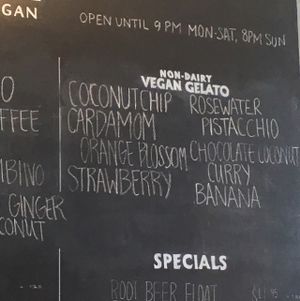 GAN
OPEN UNTIL 9 PM MON-SAT, 8PM SUN
O
FFEE
BINO
GINGER
CONUT
NON-DAIRY
VEGAN GELATO
COCONUT CHIP
CARDAMOM
ORANGE BLOSSOM
STRAWBERRY
ROSEWATER
PISTACCHIO
CHOCOLATE COCONUT
CURRY
BANANA
SPECIALS
ROOT BEER FLOAT